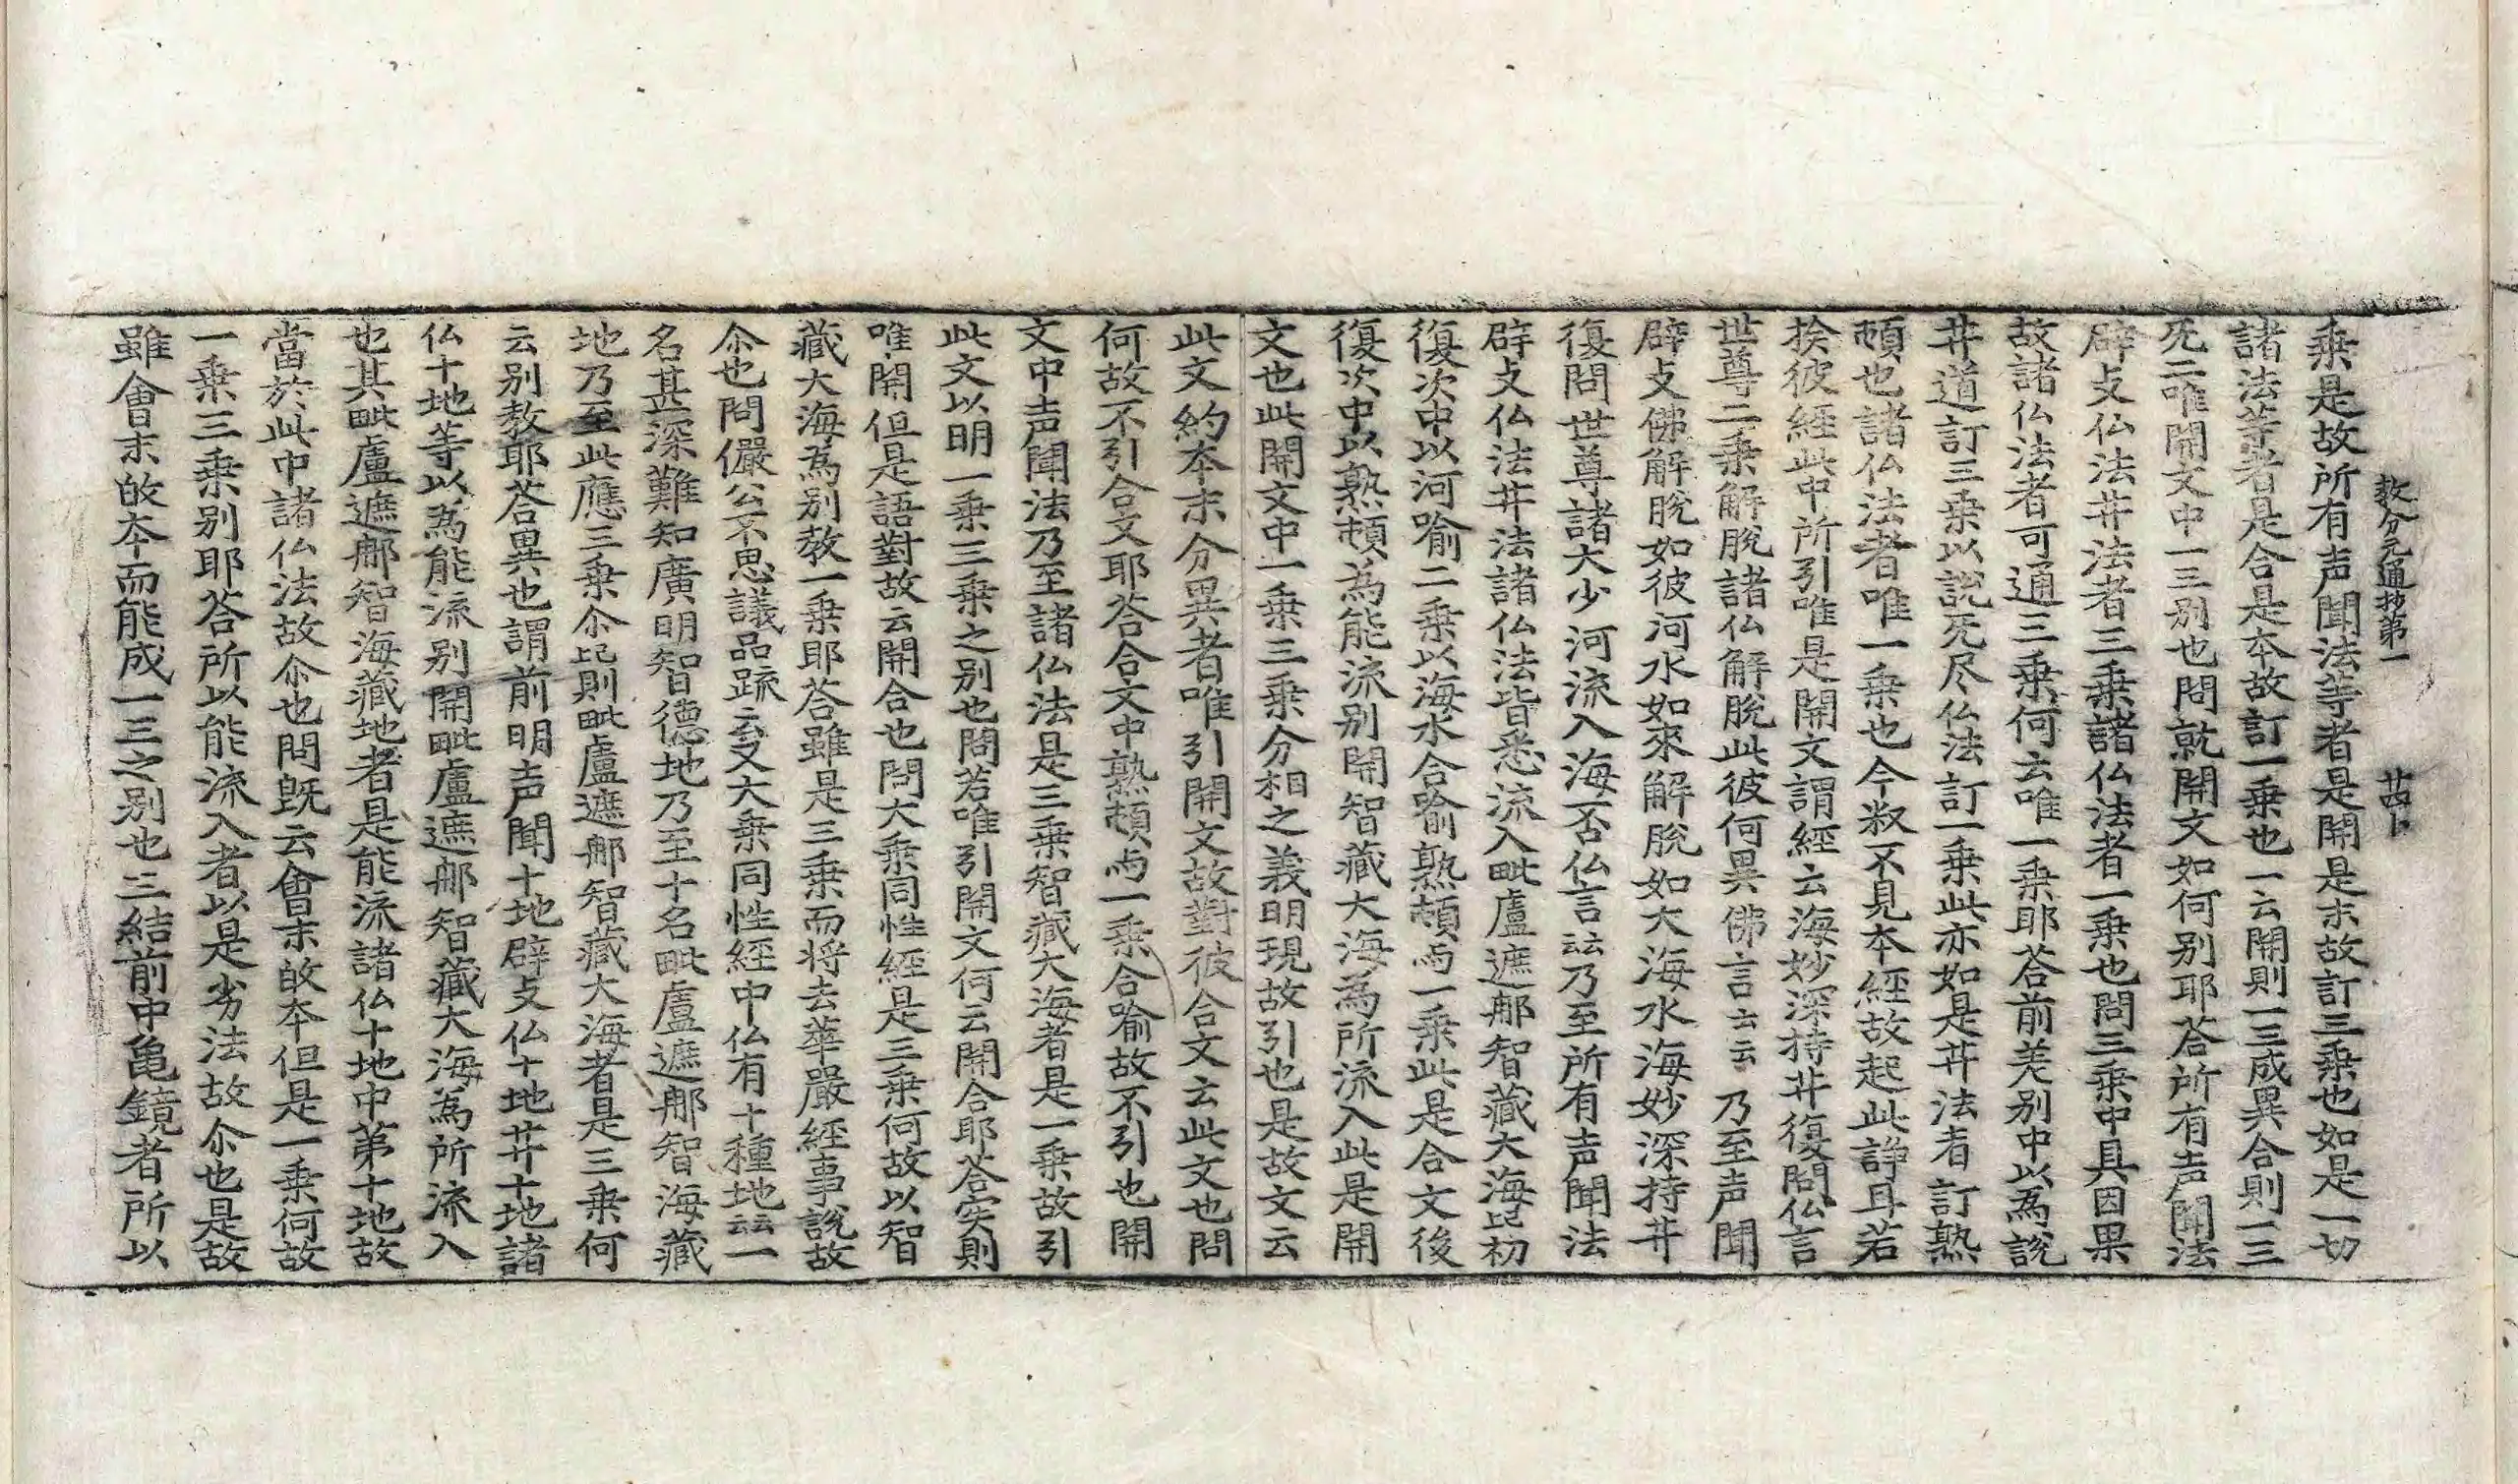 教分元通抄第一　　廿四卜
乗是故所有声聞法等者是開是末故訂三乗也如是一切
諸法等者是合是本故訂一乗也一云開則一三成異合則一三
旡二唯開文中一三别也問就開文如何别耶荅所有声聞法
辟攴仏法井法者三乗諸仏法者一乗也問三乗中具因果
故諸仏法者可通三乗何云唯一乗耶荅前差别中以為說
井道訂三乗以說旡尽仏法訂一乗此亦如是井法者訂熟
頓也諸仏法者唯一乗也今叙不見本經故起此諍耳若
捡彼經此中所引唯是開文謂經云海妙深持井復問仏言
世尊二乗解脫諸仏解脫此彼何異佛言云云乃至声聞
辟攴佛解脫如彼河水如來解脫如大海水海妙深持井
復問世尊諸大少河流入海否仏言云云乃至所有声聞法
辟攴仏法井法諸仏法皆悉流入毗盧遮郍智藏大海此初
復次中以河喻二乗以海水合喻熟頓与一乗此是合文後
復次中以熟頓為能流别開智藏大海為所流入此是開
文也此開文中一乗三乗分相之義明現故引也是故文云
此文約本末分異者唯引開文故對彼合文云此文也問
何故不引合文耶荅合文中熟頓与一乗合喻故不引也開
文中声聞法乃至諸仏法是三乗智藏大海者是一乗故引
此文以明一乗三乗之别也問若唯引開文何云開合耶荅实則
唯開但是語對故云開合也問大乗同性經是三乗何故以智
藏大海為别教一乗耶荅雖是三乗而将去華嚴經事說故
尒也問儼公不思議品䟽云又大乗同性經中仏有十種地云云一
名甚深難知廣明智德地乃至十名毗盧遮郍智海藏
地乃至此應三乗尒此則毗盧遮郍智藏大海者是三乗何
云别教耶荅異也謂前明声聞十地辟攴仏十地井十地諸
仏十地等以為能流别開毗盧遮郍智藏大海為所流入
也其毗盧遮郍智海藏地者是能流諸仏十地中第十地故
當於此中諸仏法故尒也問旣云會末㪽本但是一乗何故
一乗三乗别耶荅所以能流入者以是劣法故尒也是故
雖會末㪽本而能成一三之别也三結前中亀鏡者所以